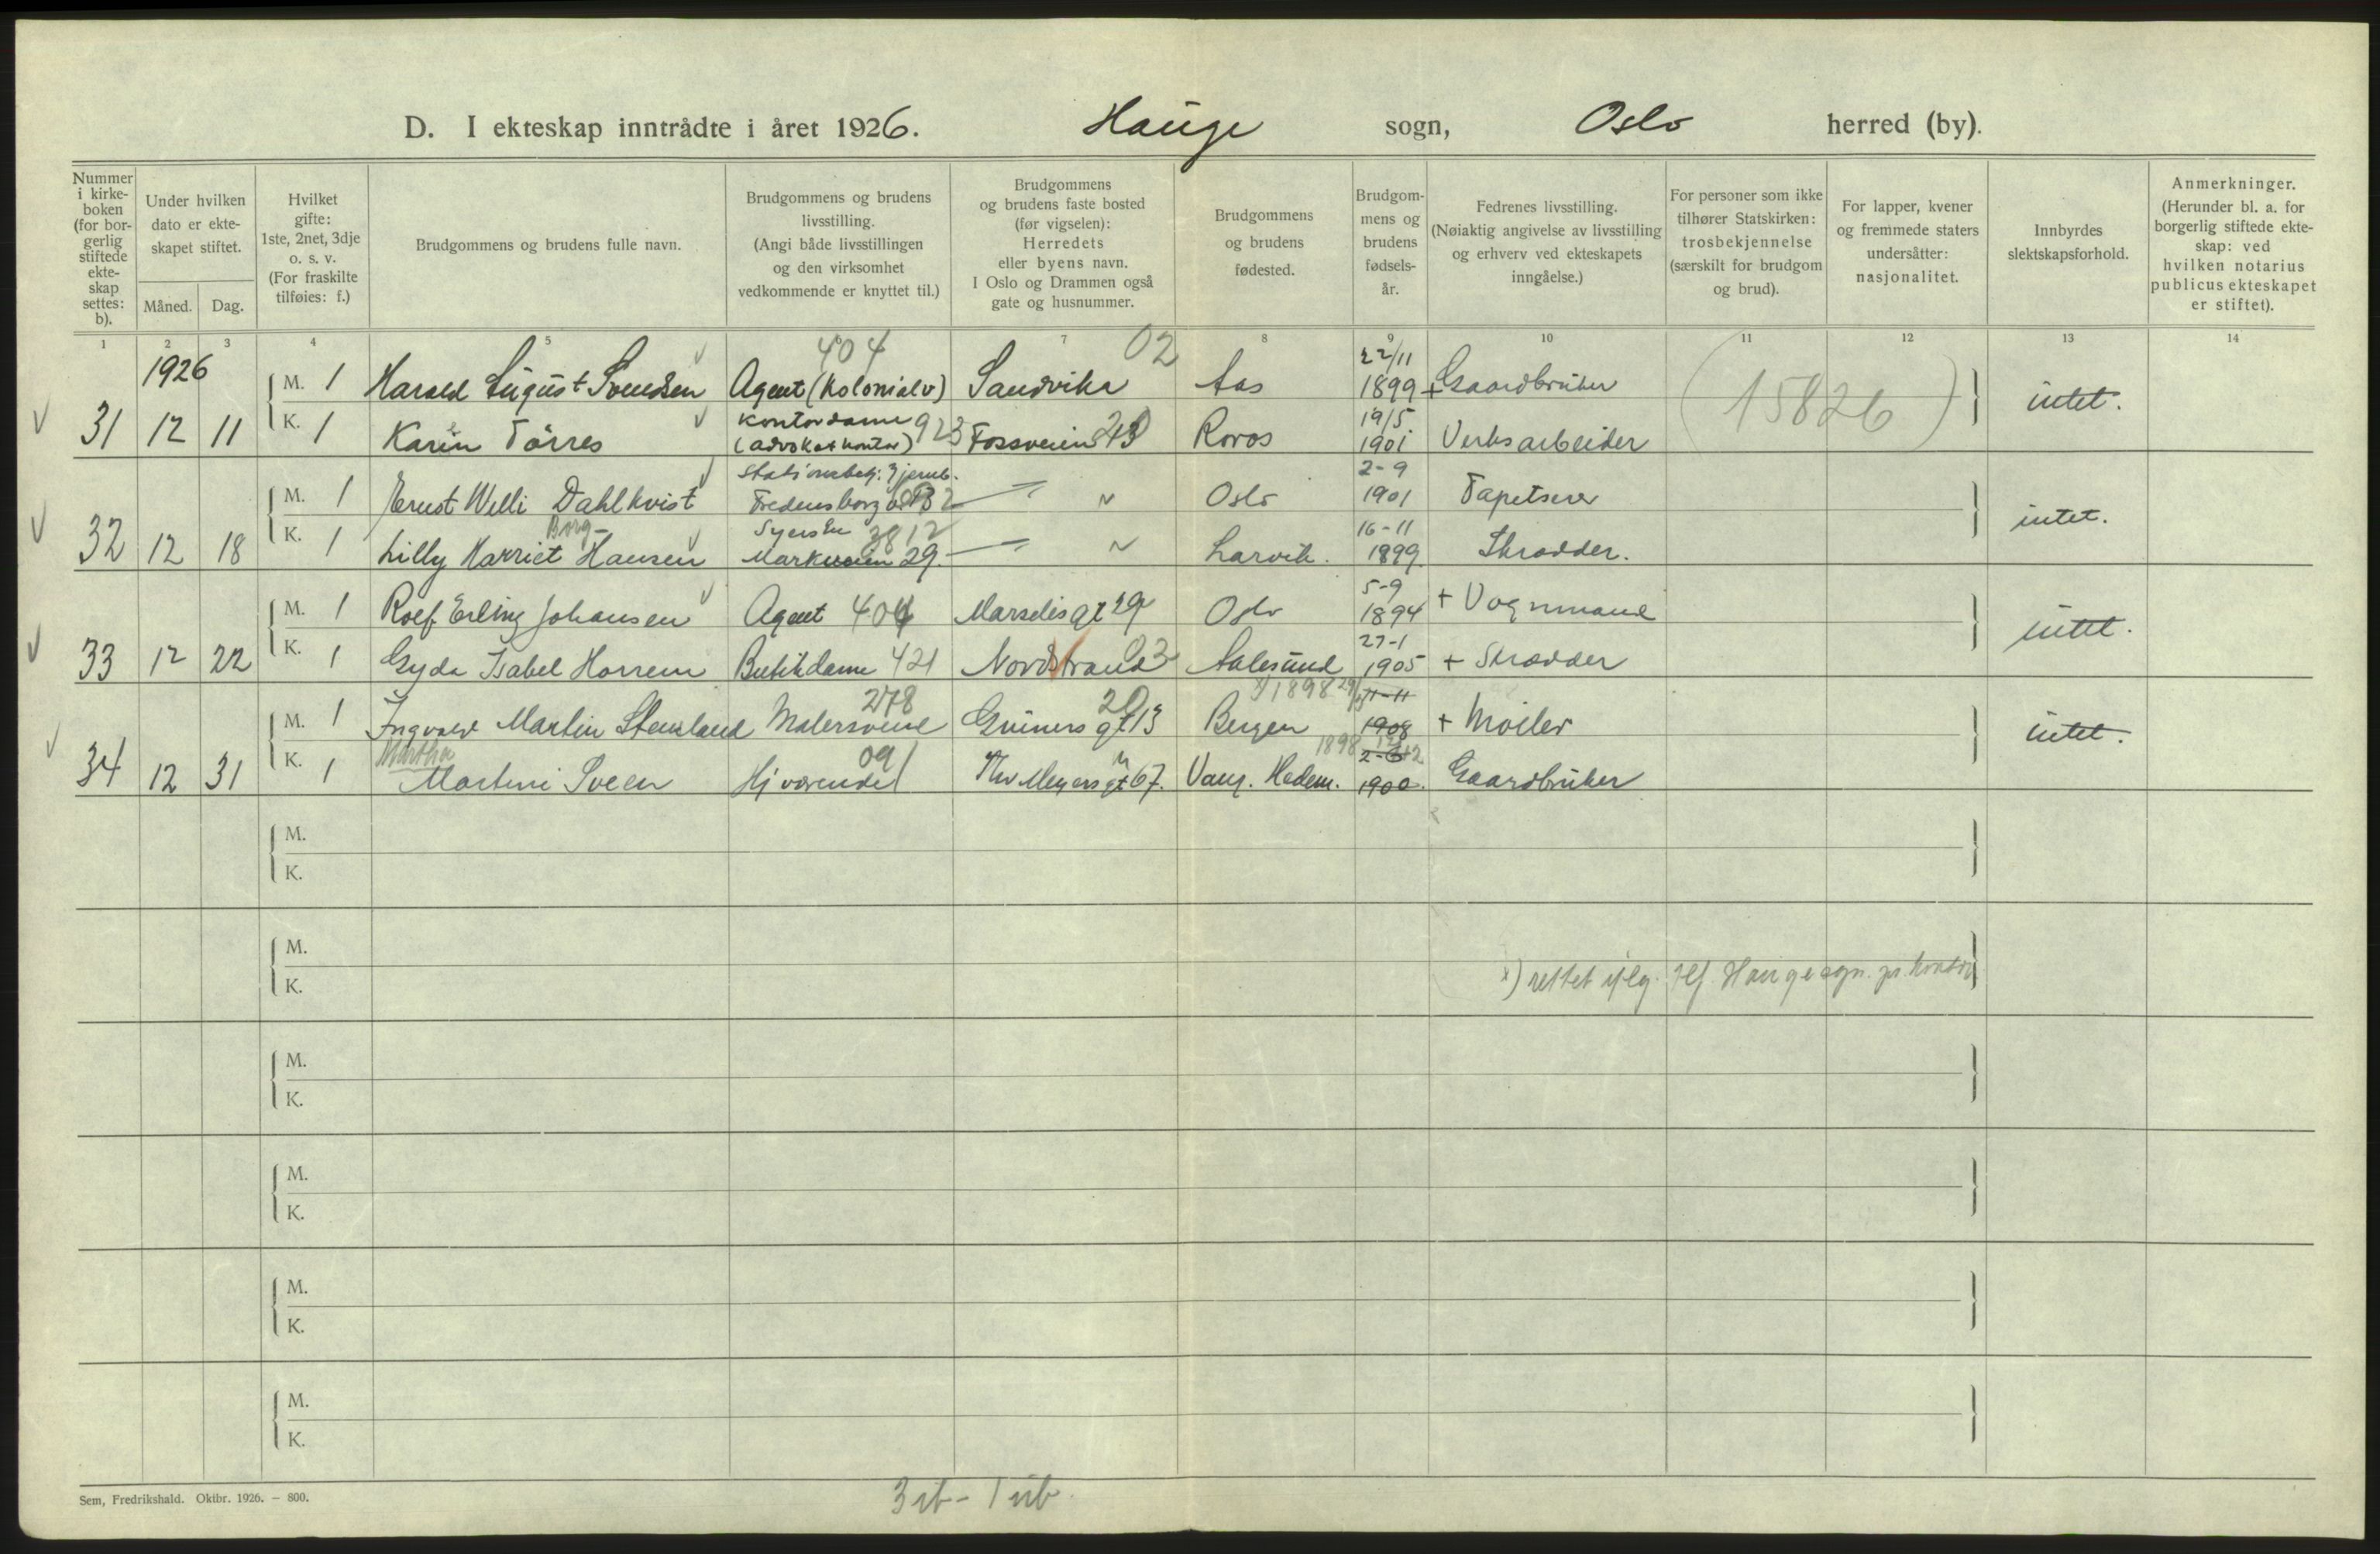 D. I ekteskap inntrådte i året 1926. Hauge sogn, Oslo herred (by).
Nummer i kirke-boken (for bor-gerlig stiftede ekte-skap settes: b).
Under hvilken dato er ekte-skapet stiftet.
Måned. Dag.
Hvilket gifte: 1ste, 2net, 3dje o. s. v. (For fraskilte tilføies: f.)
Brudgommens og brudens fulle navn.
Brudgommens og brudens livsstilling. (Angi både livsstillingen og den virksomhet vedkommende er knyttet til.)
Brudgommens og brudens faste bosted (før vigselen): Herredets eller byens navn. I Oslo og Drammen også gate og husnummer.
Brudgommens og brudens fødested.
Brudgom-mens og brudens fødsels-år.
Fedrenes livsstilling. (Nøiaktig angivelse av livsstilling og erhverv ved ekteskapets inngåelse.)
For personer som ikke tilhører Statskirken: trosbekjennelse (særskilt for brudgom og brud).
For lapper, kvener og fremmede staters undersåtter: nasjonalitet.
Innbyrdes slektskapsforhold.
Anmerkninger. (Herunder bl. a. for borgerlig stiftede ekte-skap: ved hvilken notarius publicus ekteskapet er stiftet).
1 2 3 4 5 7 8 9 10 11 12 13 14
1926
404 02 22/11
M. 1 Harald August Svendsen Agent (Kolonialv) Sandvika Aas 1899 + Gaardbruker
(15826) intet.
31 12 11 K. 1 Karin Törres Kontordame (advokatkontor) 923 Fossveien Roros 19/5 1901 Verksarbeider
M. 1 Ernst Willi Dahlkvist Fredensborg " Oslo 2-9 1901 Tapetserer
intet.
Borg-
32 12 18 K. 1 Lilly Harriet Hansen Syerske 3812 Markveien 29. " Larvik. 16-11 1899 Skrædder.
M. 1 Rolf Erling Johansen Agent 404 Marselisgt 29 Oslo 5-9 1894 + Vognmand
intet.
33 12 22 K. 1 Gyda Isabel Horrem Butikdame 421 Nordstrand 03 Aalesund 27-1 1905 + Skrædder
278 20 x) 1898 11-11
M. 1 Ingvald Martin Stensland Malersvend Grüners gt 13 Bergen 1908 + Møller
intet.
Martha 09 1898
34 12 31 K. 1 Martine Sveen Hj værende Thv Meyers gt 67. Vang. Hedem. 1900. Gaardbruker
M.
K.
M.
K.
x) rettet iflg. tlf. Hauge sogn. pr. kontor
M.
K.
M.
K.
M.
K.
M.
K.
Sem, Fredrikshald. Oktbr. 1926. — 800.
3 ib - 1 ub.